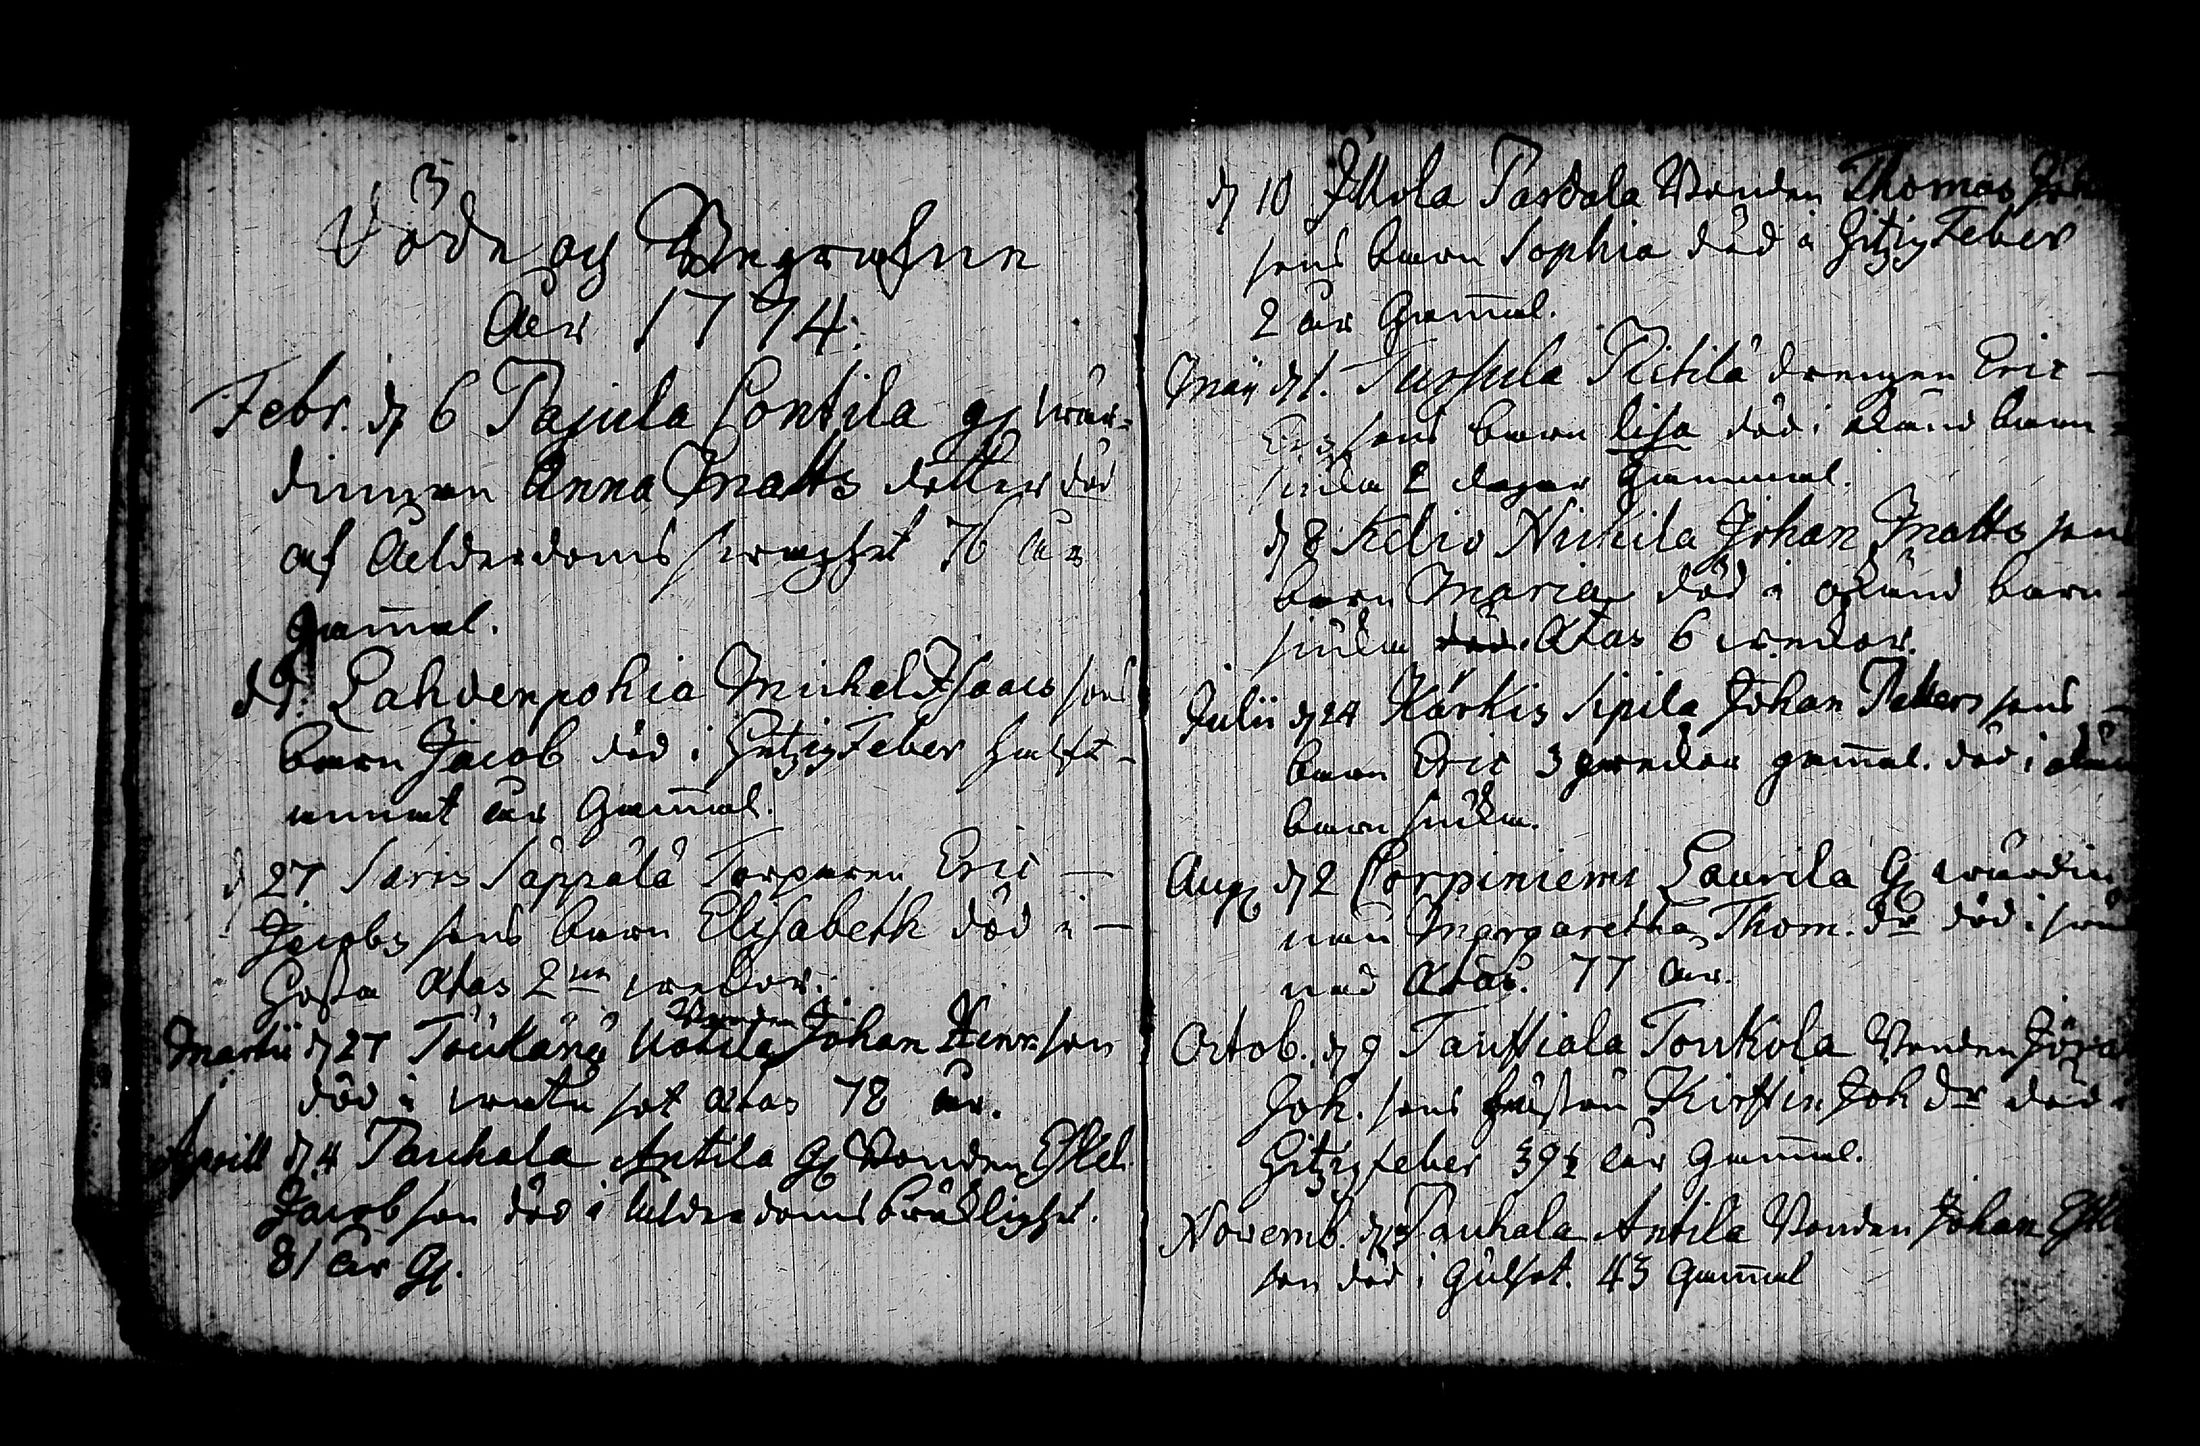 Döde och Begrafne
Åhr 1774.
Febr. d 6 Pajula Contila gl. wär-
dinnan Anna Matts dotter död
af Ålderdoms swaghet 76 år
gam̅al.
d 9. Lahdenpohia Michel Isaacs sons
barn Jacob död i Hetzig Feber half-
annat år Gam̅al.
d 27 Saris Säppälä Torparen Eric
Jacobs sons barn Elisabeth död i
Hosta ætas 2 weckor.
Martii d 27 Töükänä Kotila Bonden Johan Henr. son
död i ætas 78 år.
Aprill d 4 Pauhala Antila gl. Bonden Eskel
Jacobson död i Ålderdoms bräcklighet.
81 år gl.
d 10 Illola Pardala Bonden Thomas Joh
sons barn Sophia död i Hitzig Feber
2 år Gam̅al.
Maji d 1. Tursula Pietilä drengen Eric
Erics sons barn Lisa död i okänd barn
siuka 2 dagar Gammal.
d 8 Kelio Nickila Johan Matts sons
barn Maria död i okänd barn
siuka död. Ætas 6 weckor.
Julii d 24 Kärkis Sipila Johan Petters sons
barn Eric 3 weckor gam̅al. död i okän
barn siuka.
Aug. d 2 Corpiniemi Laurila gl. wärdin
nan Margaretha Thom. dr död i
Ætas. 77 år.
Octob. d 9 Tausstiala Toukola Bonden Jöran
Joh. sons hustru Kirstin Joh dr död
Hitzig feber 39½ år Gam̅al.
Novemb. d Pauhala Antila Bonden Johan Eskel
son död i Gulsot. 43 Gam̅al